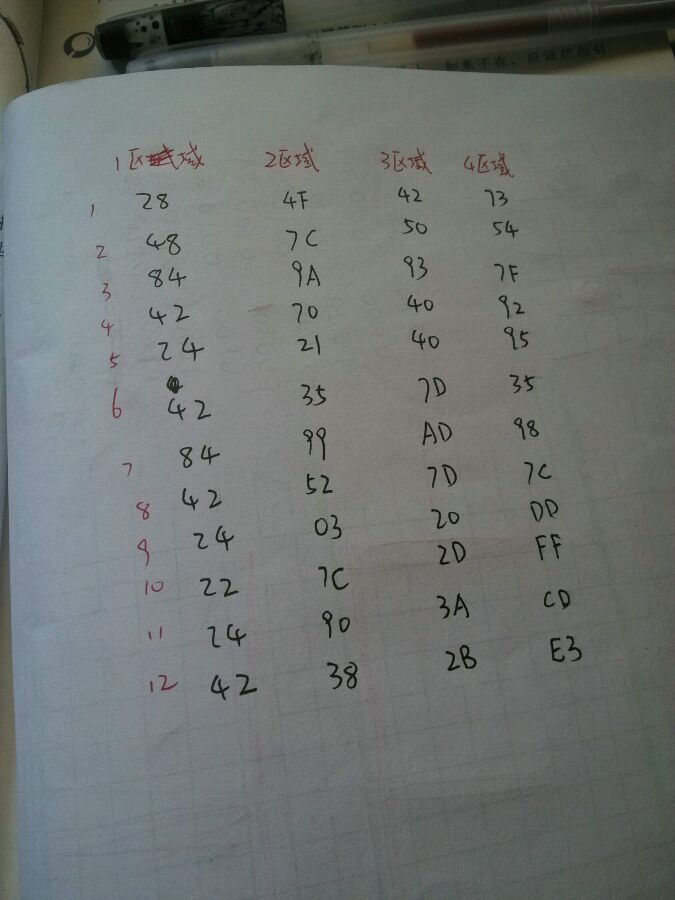 如果不在，应该把指针
1区域 2区域 3区域 4区域
1 28 4F 42 73
2 48 7C 50 54
3 84 9A 93 7F
4 42 70 40 92
5 24 21 40 95
6 42 35 7D 35
7 84 99 AD 98
8 42 52 7D 7C
9 24 03 20 DD
10 22 7C 2D FF
11 24 90 3A CD
12 42 38 2B E3